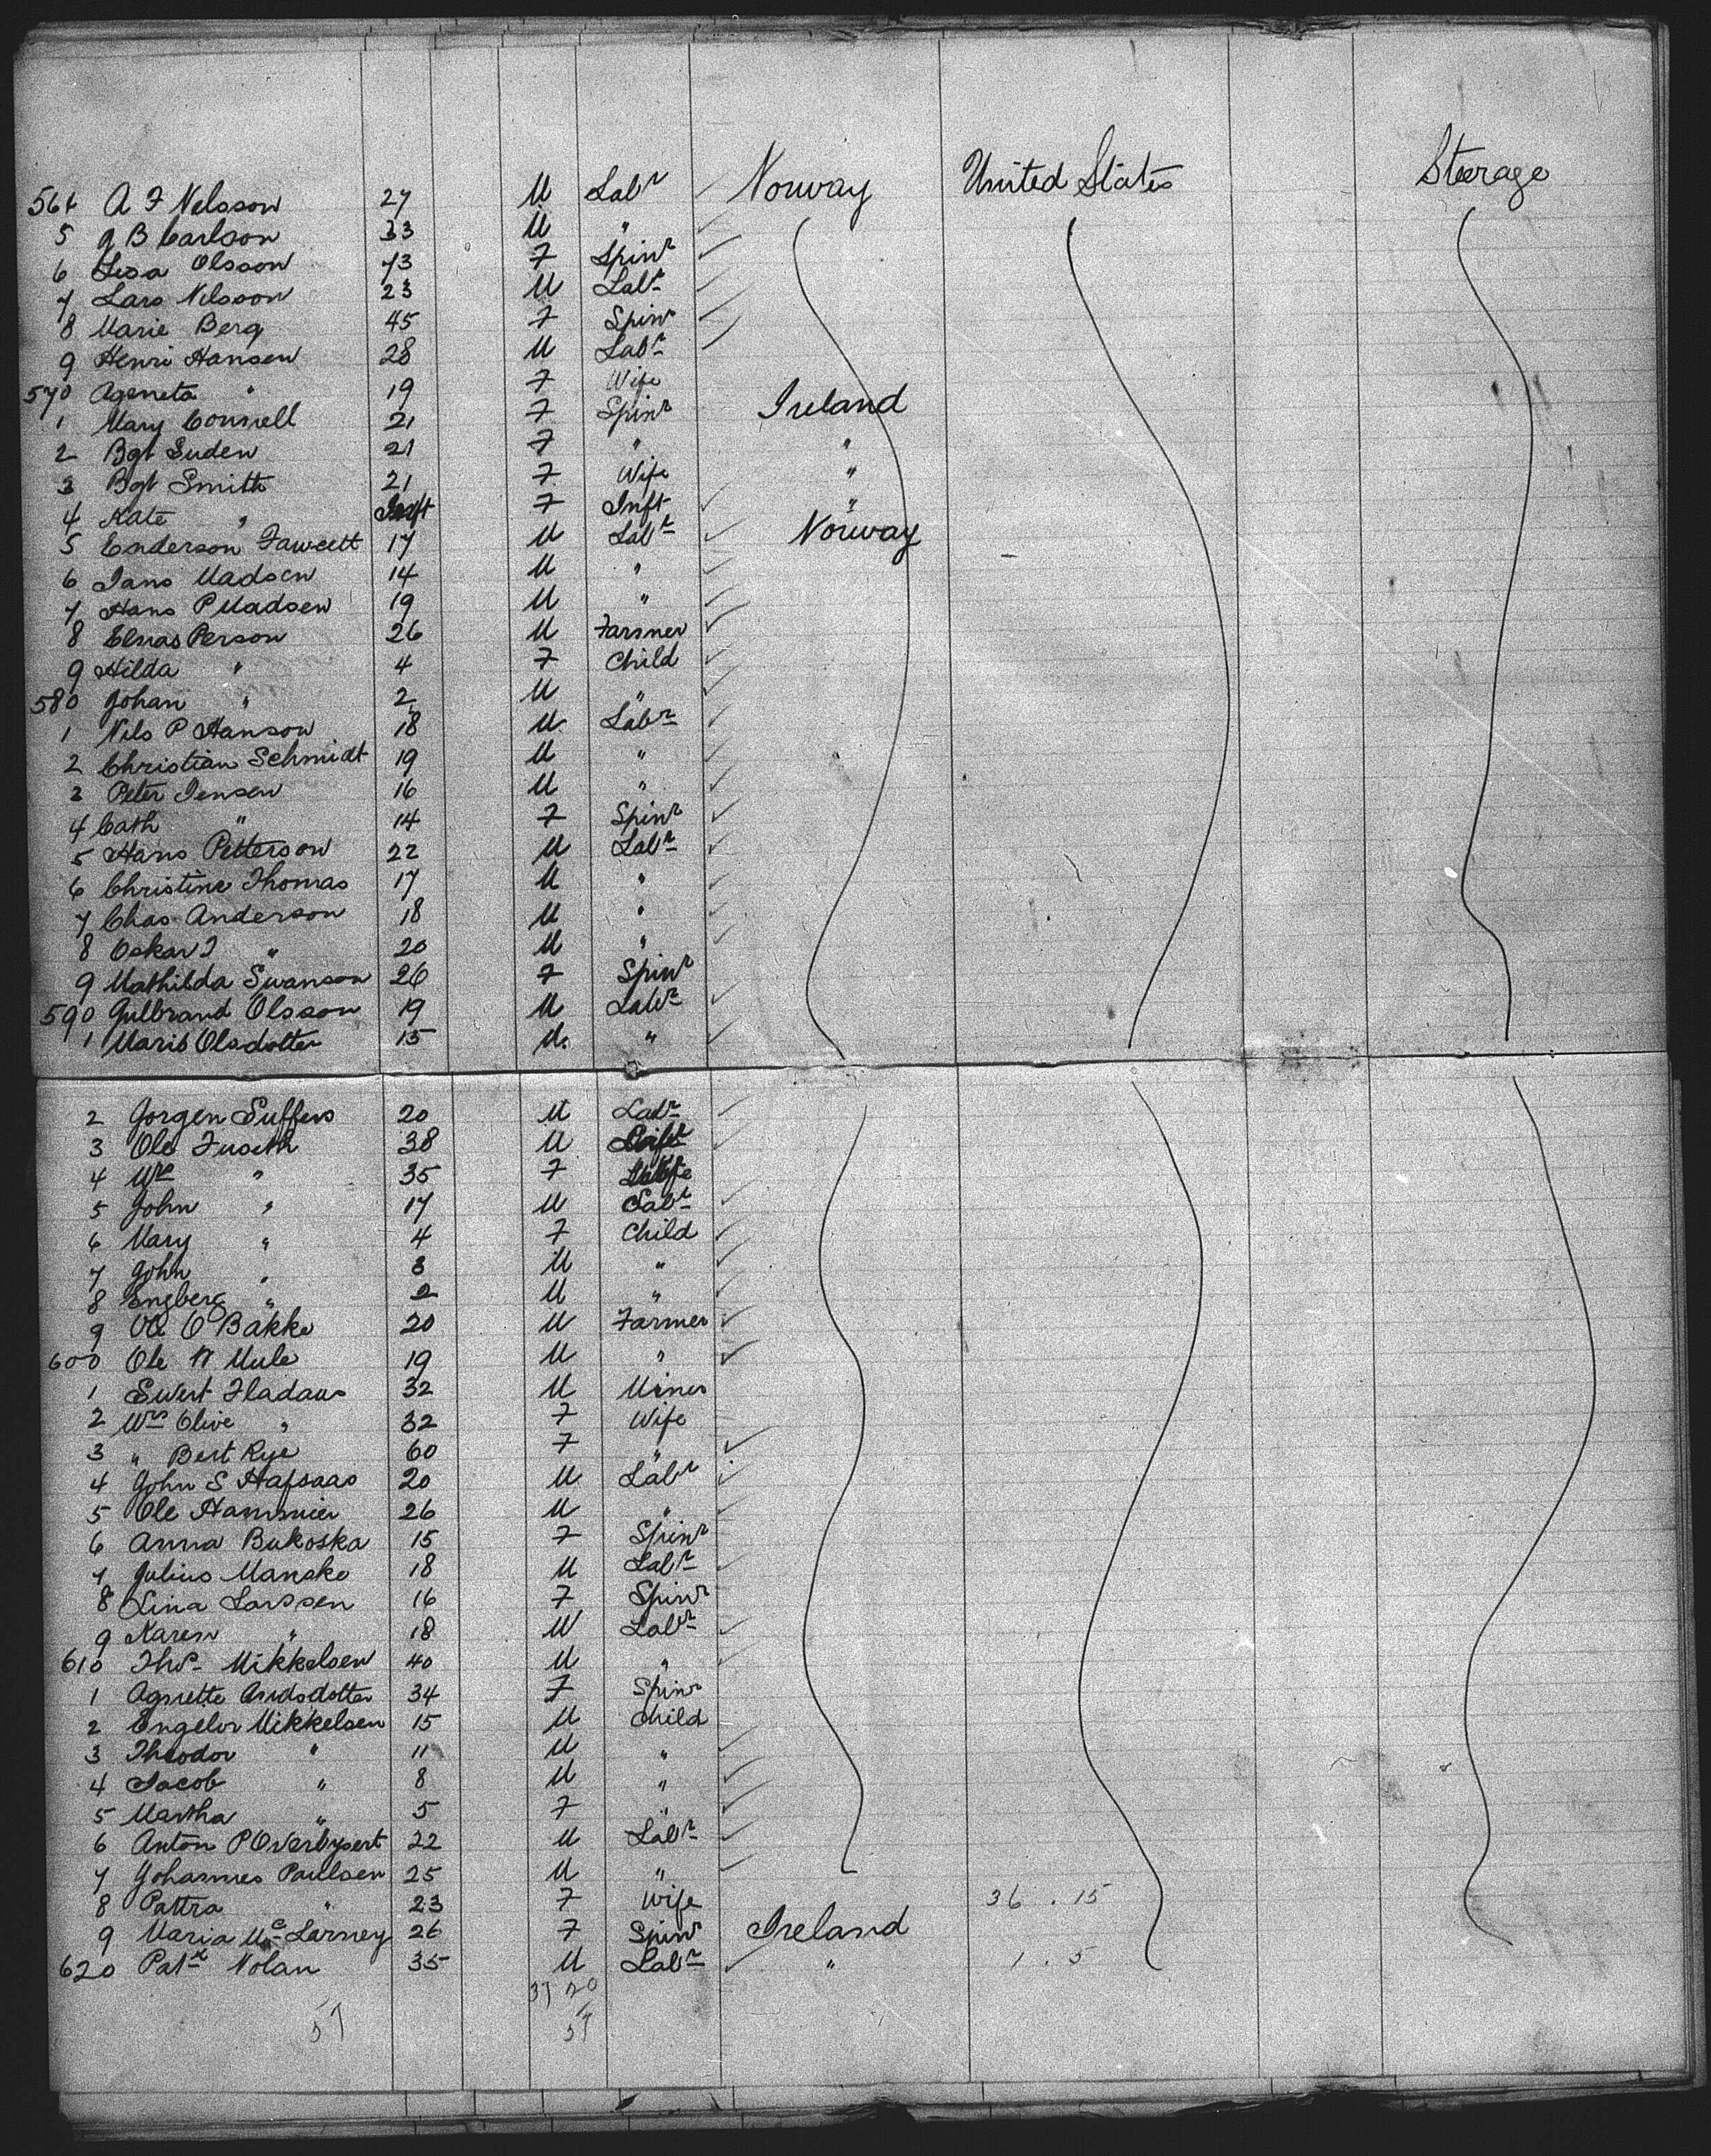 564 A F Nelsson 27 M Labr Norway United States Steerage
5 G B Carlson 33 M "
6 Lisa Olsson 43 F Spinr
7 Lars Nilsson 23 M Labr
8 Marie Berg 45 F Spinr
9 Henri Hansen 28 M Labr
570 Agneta " 19 F Wife
1 Mary Connell 21 F Spinr Ireland
2 Bgt 21 F " "
3 Bgt Smith 21 F Wife "
4 Kate " Inft F Inft "
5 Enderson Fawcett 17 M Labr Norway
6 Jans Madsen 14 M "
7 Hans P Madsen 19 M "
8 Elnas Person 26 M Farmer
9 Hilda " 4 F Child
580 Johan " 2 M "
1 Nils P Hanson 18 M Labr
2 Christian Schmidt 19 M "
3 Peter Jensen 16 M "
4 Cath " 14 F Spinr
5 Hans Petterson 22 M Labr
6 Christine Thomas 17 M "
7 Chas Anderson 18 M "
8 Oskar J " 20 M "
9 Mathilda Swanson 26 F Spinr
590 Gulbrand Olsson 19 M Labr
1 Marib Olsdotter 15 M "
2 Jorgen 20 M Labr
3 Ole 38 M
4 Mrs " 35 F Wife
5 John " 17 M Labr
6 Mary " 4 F Child
7 John " 3 M "
8 Engberg " 2 M "
9 Ole O Bakke 20 M Farmer
600 Ole N Mule 19 M "
1 Sivert 32 M Miner
2 Mrs Olive " 32 F Wife
3 " Bert Rye 60 F "
4 John S Hafsaas 20 M Labr
5 Ole Hammier 26 M "
6 Anna Bukoska 15 F Spinr
7 Julius Manske 18 M Labr
8 Lina Larssen 16 F Spinr
9 Karen " 18 M Labr
610 Thos Mikkelsen 40 M "
1 Agnette Arndsdotter 34 F Spinr
2 Engelor Mikkelsen 15 M Child
3 Theodor " 11 M "
4 Jacob " 8 M "
5 Martha " 5 F "
6 Anton P 22 M Labr
7 Johannes Paulsen 25 M "
8 Pattra " 23 F Wife 36 . 15
9 Maria McLarney 26 F Spinr Ireland
620 Patk Nolan 35 M Labr " 1 . 5
37 20
57 57